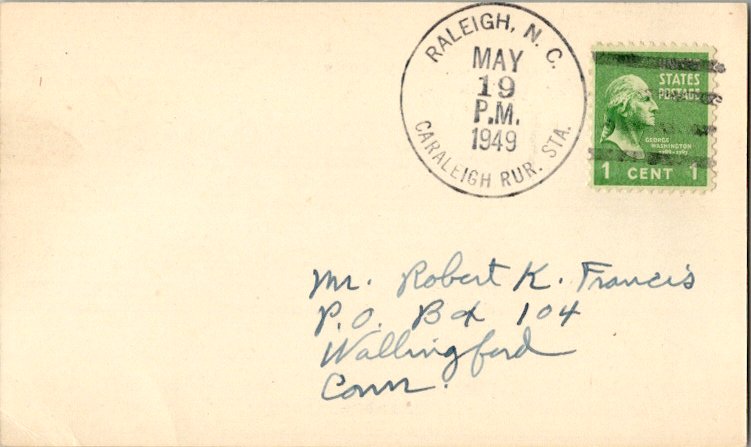 RALEIGH, N. C.
MAY
19
P.M.
1949
CARALEIGH RUR. STA.
STATES
POSTAGE
GEORGE
WASHINGTON
1 CENT 1
Mr. Robert K. Francis
P.O. Box 104
Wallingford
Conn.